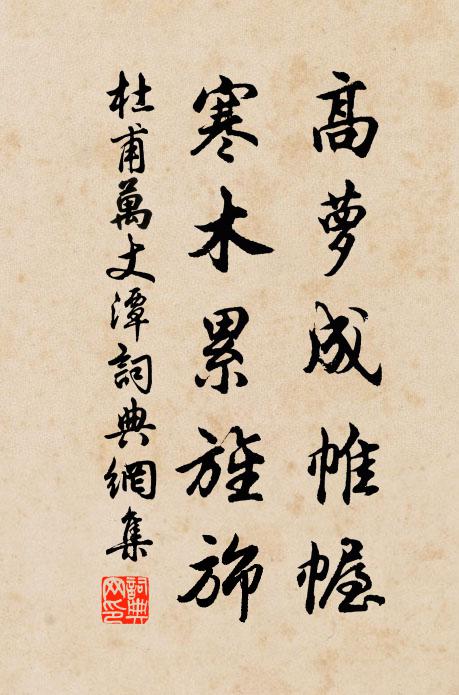 高萝成帷幄
寒木累旌旆
杜甫萬丈潭詞典網集
詞典網印